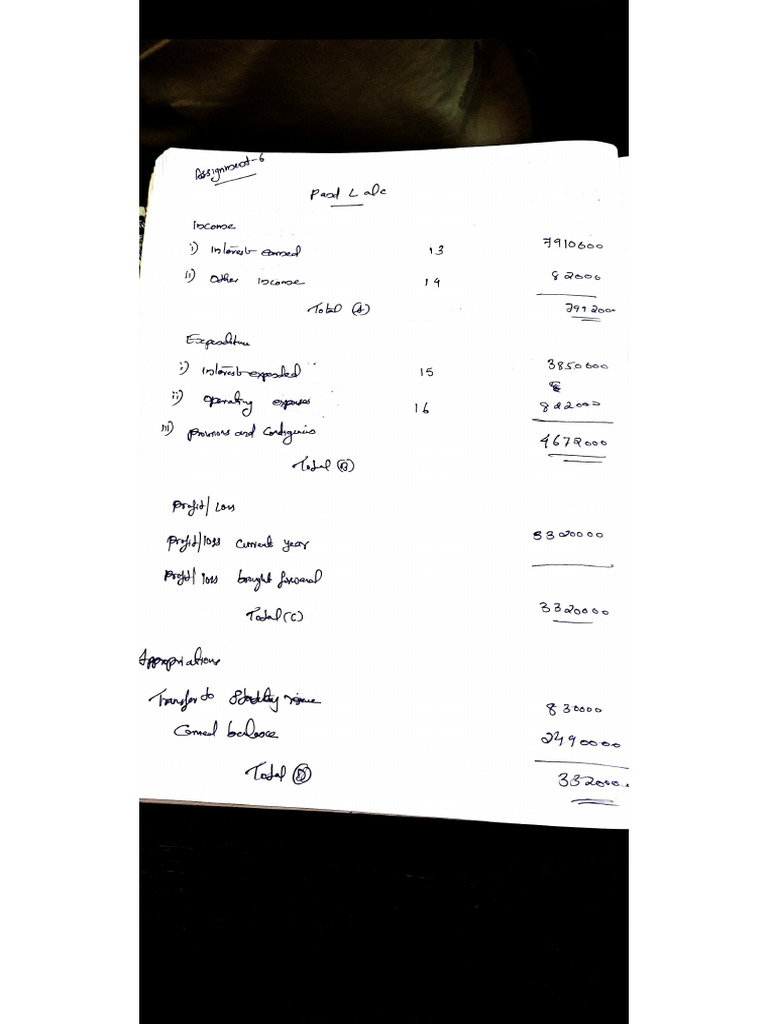 Assignment-6
P and L a/c
Income
i) Interest earned 13 7910000
ii) Other income 14 82000
Total (A) 7992000
Expenditure
i) Interest expended 15 3850000
ii) Operating expenses 16 822000
iii) Provisions and Contigencies
4672000
Total (B)
Profit/Loss
Profit/loss current year 3320000
Profit/loss brought forward
Total (C) 3320000
Appropriations
Transfer to 830000
balance 2490000
Total (D) 332000